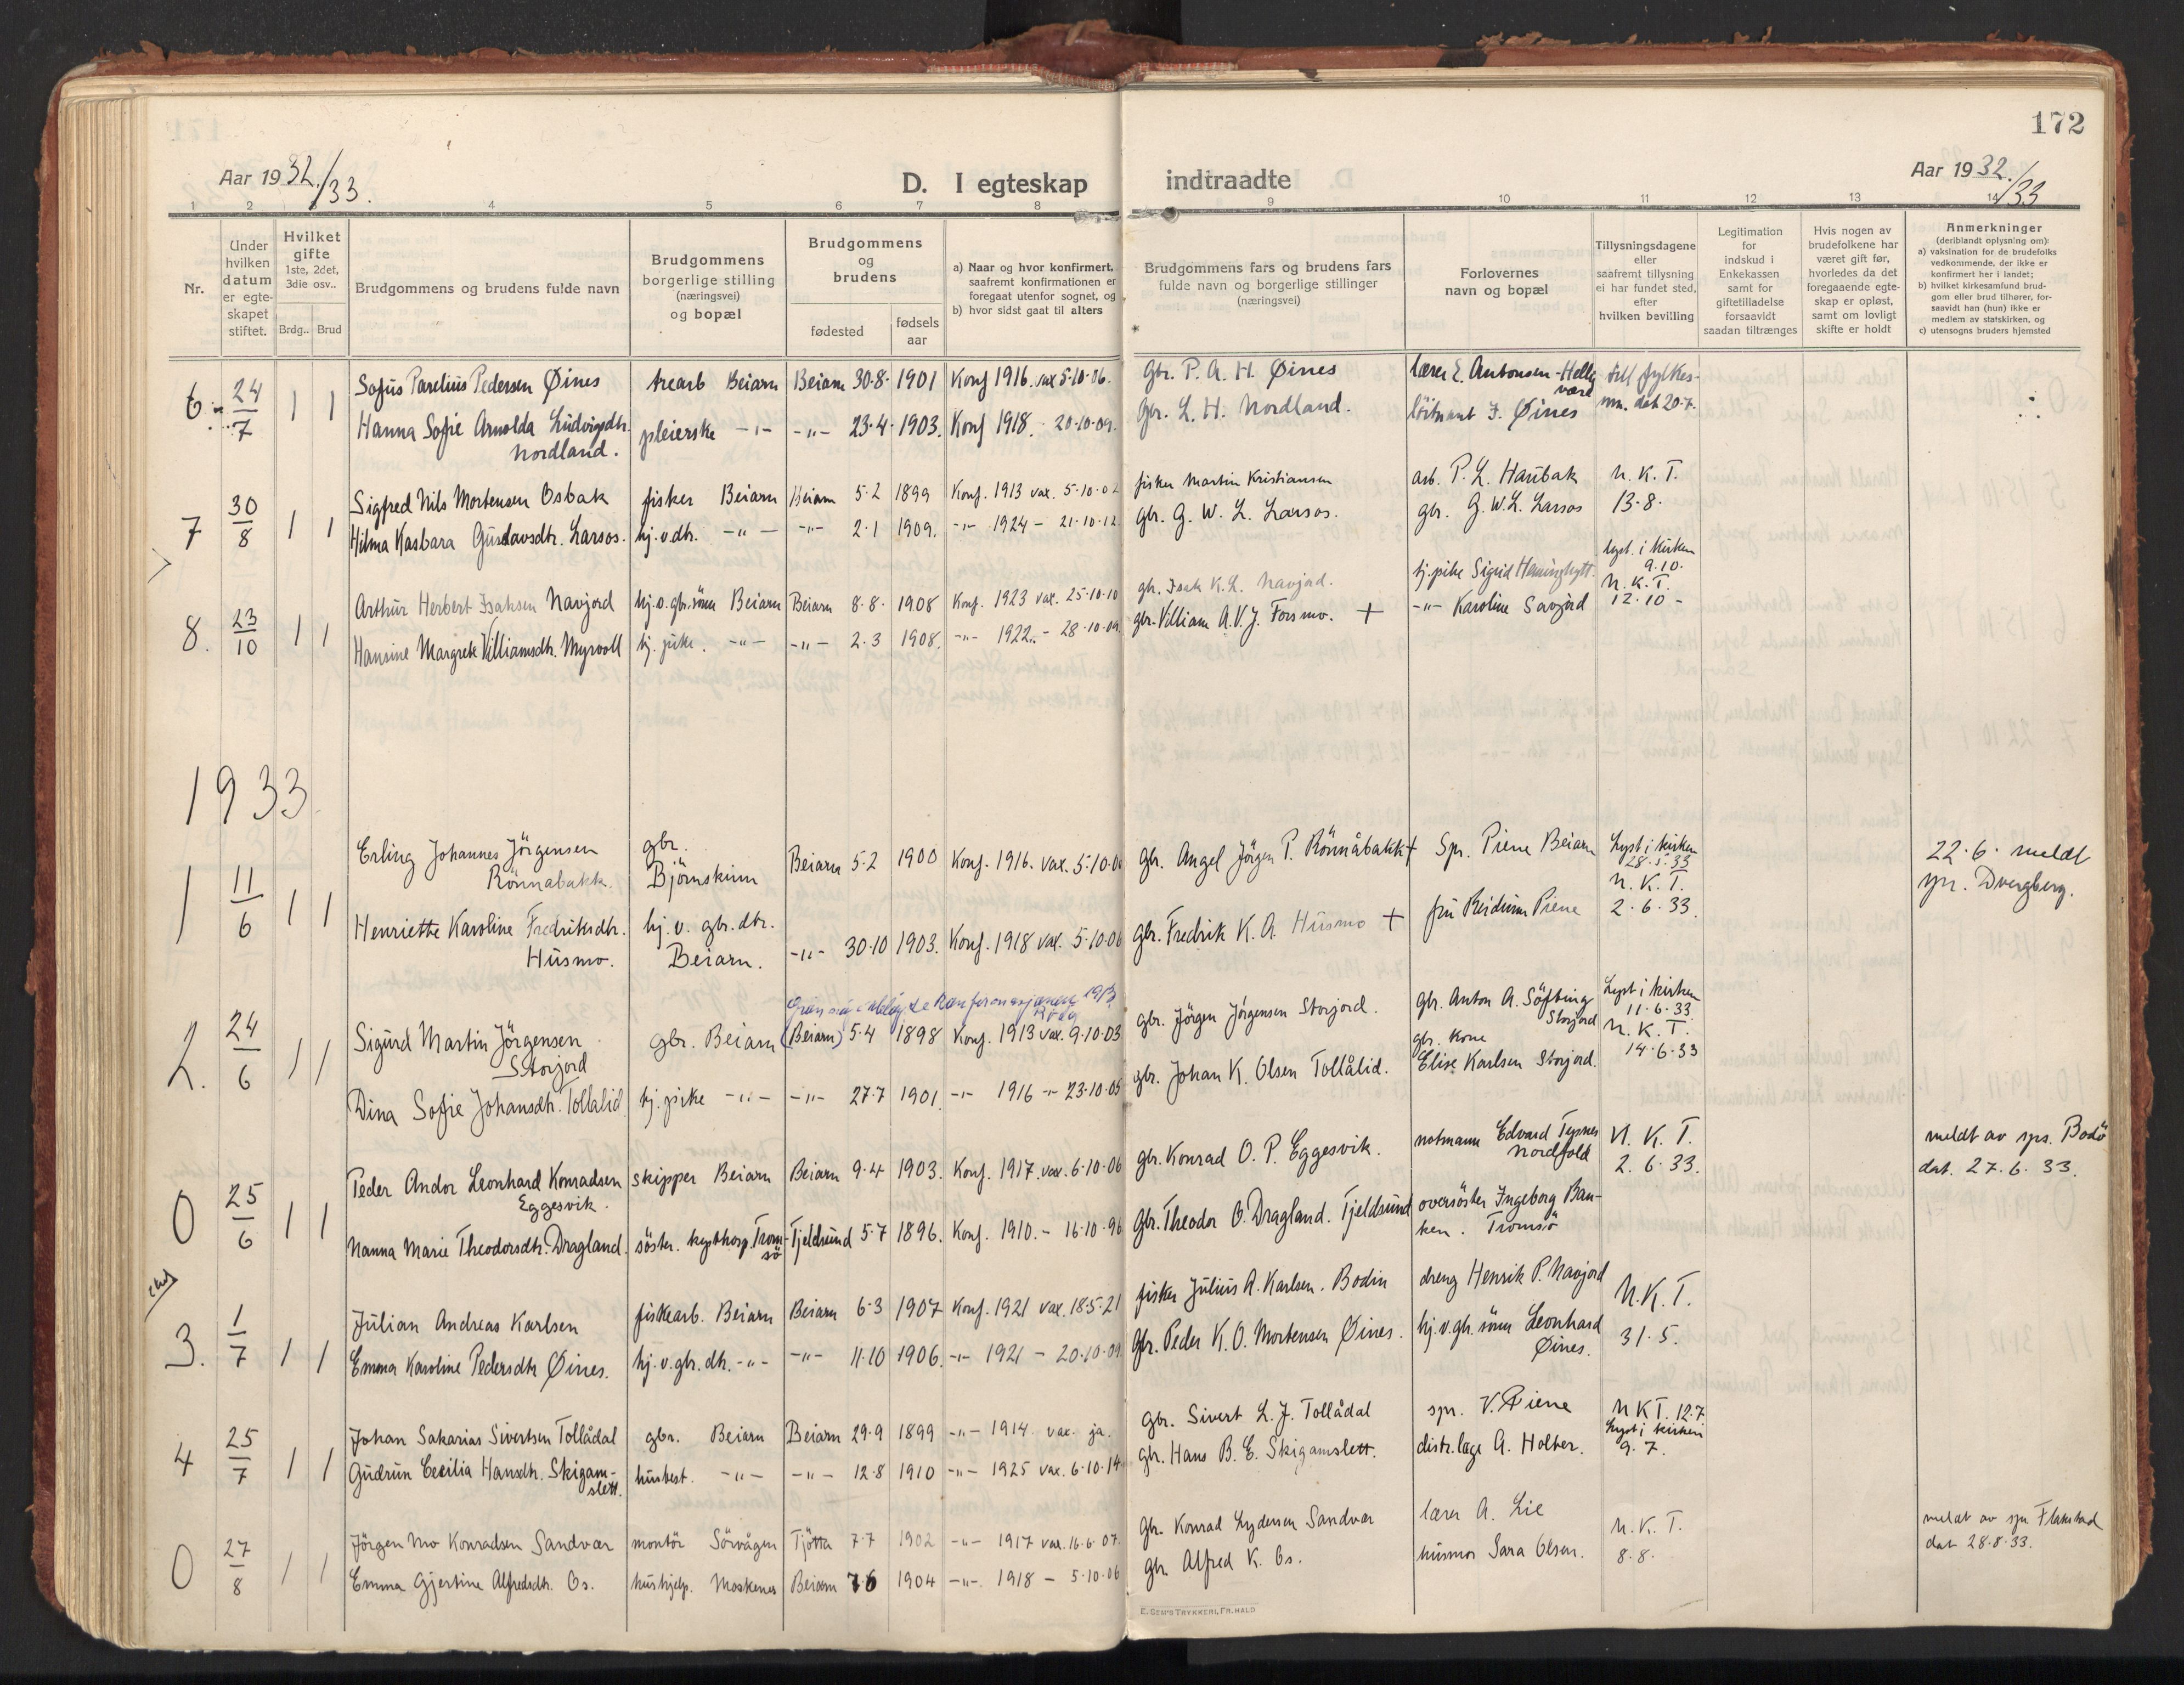 172
Aar 1932./33.
D. I egteskap indtraadte
Aar 1932./33
1 2 3 4 5 6 7 8 9 10 11 12 13 14
Nr.
Under hvilken datum er egte-skapet stiftet.
Hvilket gifte 1ste, 2det, 3die osv..
Brdg.. Brud
Brudgommens og brudens fulde navn
Brudgommens borgerlige stilling (næringsvei) og bopæl
Brudgommens og brudens
fødested
fødsels aar
a) Naar og hvor konfirmert, saafremt konfirmationen er foregaat utenfor sognet, og
b) hvor sidst gaat til alters
Brudgommens fars og brudens fars fulde navn og borgerlige stillinger (næringsvei)
Forlovernes navn og bopæl
Tillysningsdagene eller saafremt tillysning ei har fundet sted, efter hvilken bevilling
Legitimation for indskud i Enkekassen samt for giftetilladelse forsaavidt saadan tiltrænges
Hvis nogen av brudefolkene har været gift før, hvorledes da det foregaaende egte-skap er opløst, samt om lovligt skifte er holdt
Anmerkninger
(deriblandt oplysning om):
a) vaksination for de brudefolks vedkommende, der ikke er konfirmert her i landet;
b) hvilket kirkesamfund brud-gom eller brud tilhører, for-saavidt han (hun) ikke er medlem av statskirken, og
c) utensogns bruders hjemsted
6. 24/7 1 1 Sofus Parelius Pedersen Øines Beiarn Beiarn 30-8- 1901 Konf 1916. vax 5-10-06. Gbr. P. A. H. Øines lærer E. Antonsen - Hellig vær till fylkes-
Hanna Sofie Arnolda Ludvigsdtr. Nordland. pleierske -"- -"- 23-4- 1903. Konf 1918. - 20-10-09. Gbr. L. H. Nordland. löitnant J. Øines mn. dat 20-7.
7 30/8 1 1 Sigfred Nils Mortensen Osbak fisker Beiarn Beiarn 5-2 1899 Konf. 1913 vax. 5-10-02 fisker Martin Kristiansen arb. P. L. Haubak N. K. T.
Hilma Kasbara Gustavsdtr. Larsos. hj.v.dtr. -"- -"- 2-1 1909. -"- 1924 - 21-10-12. gbr. G. W. L. Larsos. gbr. G. W. L. Larsos 13-8-
8. 23/10 1 1 Arthur Herbert Isaksen Navjord hj.v.gbr.sönn Beiarn Beiarn 8-8- 1908 Konf. 1923 vax. 25-10-10 gbr. Isak K. L. Navjord. hj.pike Sigrid lyst. i kirken 9.10. N. K. T.
Hansine Margrete Villiamsdtr. Myrvoll hj. pike. -"- -"- 2-3 1908. -"- 1922. - 28-10-09. gbr. Villiam A. V. J. Forsmo. + -"- Karoline Savjord 12-10-
1933
1 11/6 1 1 Erling Johannes Jörgensen Rönnabakk. gbr. Björnskinn Beiarn 5-2 1900 Konf. 1916. vax. 5-10-0 gbr. Angel Jörgen P. Rönnåbakk + Spr. Piene Beiarn Lyst i kirken 28-5-33 22-6- meldt
Henriette Karoline Fredriksdtr. Husmo. hj. v. gbr. dtr. Beiarn. -"- 30-10 1903. Konf. 1918 vax. 5-10-06 gbr. Fredrik K. A. Husmo + fru Reidunn Piene N. K. T. 2-6-33. spr. Dvergberg.
1913
2. 24/6 1 1 Sigurd Martin Jörgensen Storjord gbr. Beiarn (Beiarn) 5-4 1898 Konf. 1913 vax. 9-10-03 gbr. Jörgen Jörgensen Storjord. gbr. Anton A. Söfting Storjord Lyst i kirken 11-6-33
Dina Sofie Johansdtr. Tollålid hj. pike -"- -"- 27-7 1901. -"- 1916 -"- 23-10-05 gbr. Johan K. Olsen Tollålid. gbr. kone Elise Karlsen Storjord. N. K. T. 14-6-33
0 25/6 1 1 Peder Andor Leonhard Konradsen Eggesvik. skipper Beiarn Beiarn 9-4 1903. Konf. 1917. vax. 6-10-06 gbr. Konrad O. P. Eggesvik. notmann Edvard Tennes Nordfold N. K. T. meldt av sps. Bodö
Nanna Marie Theodorsdtr. Dragland. söster. Tromsö Tjeldsund 5-7 1896. Konf. 1910. - 16-10-96 gbr. Theodor O. Dragland. Tjeldsund oversöster Ingeborg Banken. Tromsö 2-6-33. dat. 27-6-33.
3. 1/7 1 1 Julian Andreas Karlsen fiskearb. Beiarn Beiarn 6-3 1907 Konf. 1921 vax. 18-5-21 fisker Julius A. Karlsen. Bodin dreng Henrik P. Navjord N. K. T.
Emma Karoline Pedersdtr Øines. hj. v. gbr. dtr. -"- -"- 11-10 1906. -"- 1921 - 20-10-09. gbr. Peder K. O. Mortensen Øines. hj. v. gbr. sönn Leonhard Øines. 31-5.
4 25/7 1 1 Johan Sakarias Sivertsen Tollådal gbr. Beiarn Beiarn 29-9 1899 -"- 1914 vax. ja. gbr. Sivert L. J. Tollådal spr. V. Piene N K T. 12.7
Gudrun Cecilia Hansdtr. Skigam-slett. husbest. -"- -"- 12-8 1910 -"- 1925 vax. 6-10-14 gbr. Hans B. E. Skigamslett. distr. læge A. Holter. Lyst i kirken 9.7.
0 27/8 1 1 Jörgen Mo Konradsen Sandvær montör Sörvågen Tjötta 7-7 1902 -"- 1917 vax. 16-6-07. gbr. Konrad Lydersen Sandvær lærer A. Lie N. K. T. meldt av spr Flakstad
Emma Gjertine Alfredsdtr. Os. hushjelp. Moskenes Beiarn 7-6 1904 -"- 1918 - 5-10-06 gbr Alfred K. Os. husmor Sara Olsen. 8-8- dat 28-8-33.
E. SEM'S TRYKKERI, FR.HALD